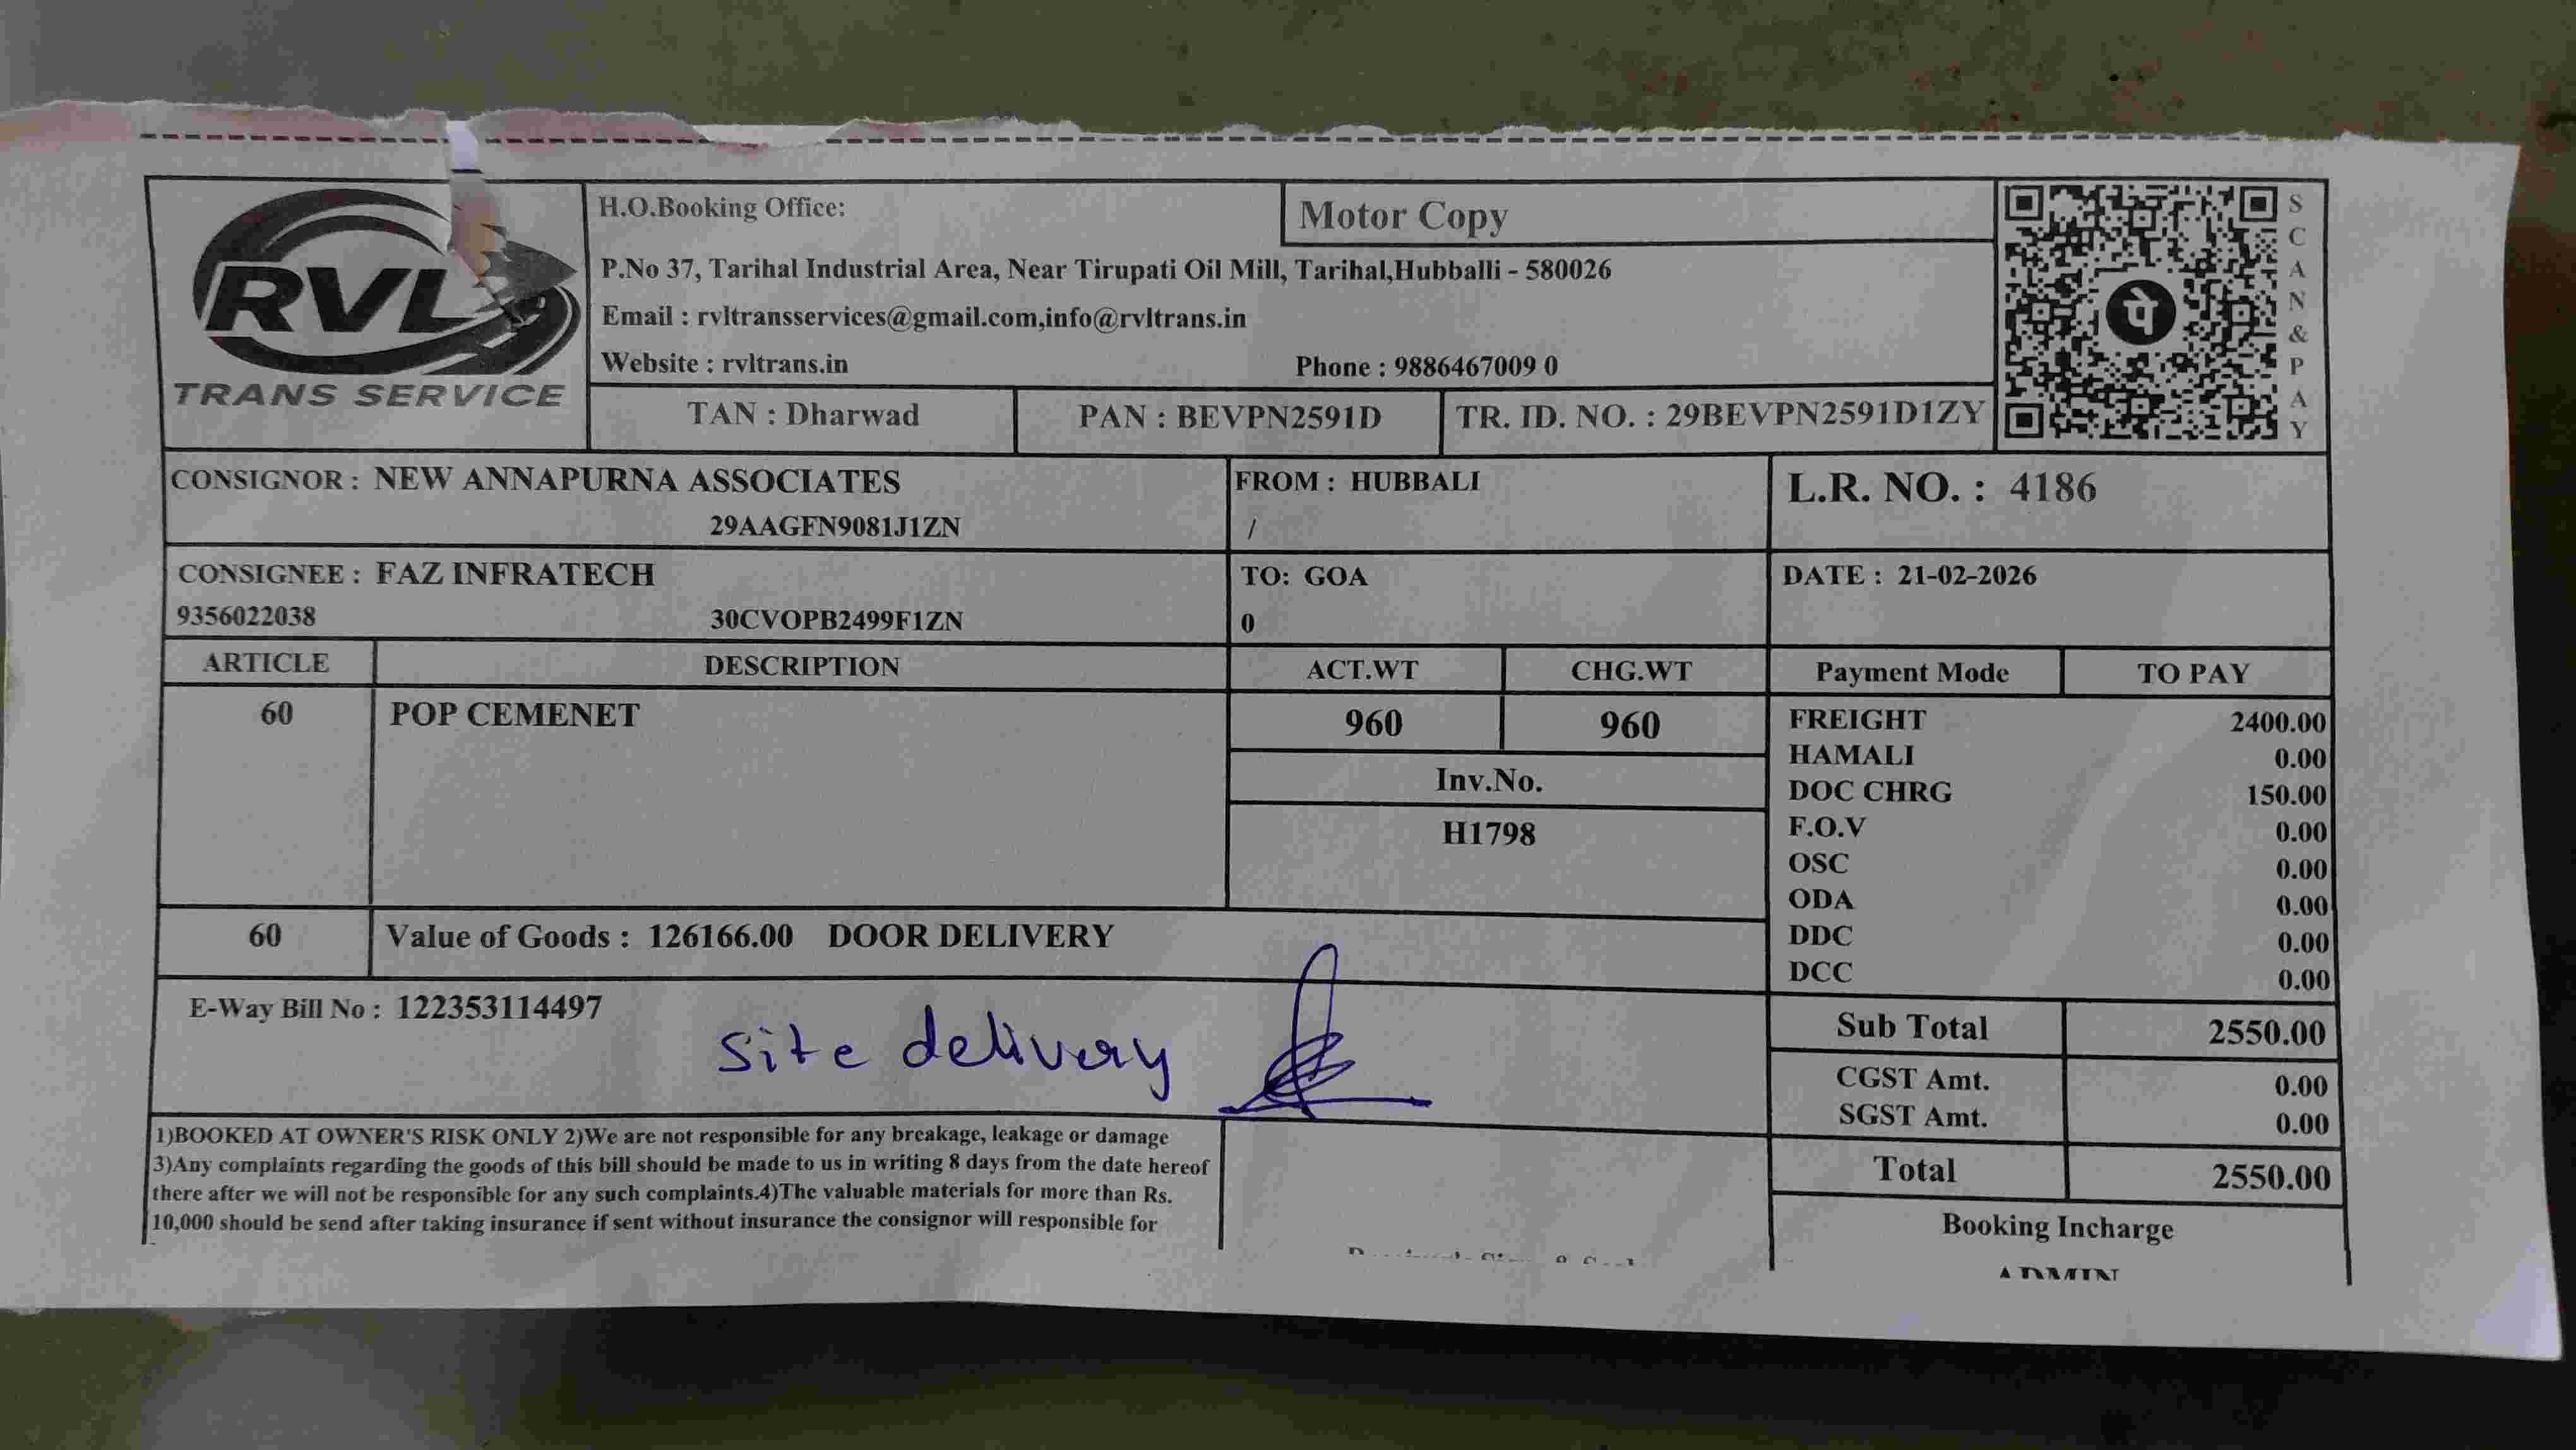 RVL
TRANS SERVICE
H.O.Booking Office:
Motor Copy
P.No 37, Tarihal Industrial Area, Near Tirupati Oil Mill, Tarihal,Hubballi - 580026
Email : rvltransservices@gmail.com,info@rvltrans.in
Website : rvltrans.in Phone : 9886467009 0
TAN : Dharwad PAN : BEVPN2591D TR. ID. NO. : 29BEVPN2591D1ZY
पे
SCAN&PAY
CONSIGNOR : NEW ANNAPURNA ASSOCIATES
29AAGFN9081J1ZN
FROM : HUBBALI
/
L.R. NO. : 4186
CONSIGNEE : FAZ INFRATECH
9356022038 30CVOPB2499F1ZN
TO: GOA
0
DATE : 21-02-2026
ARTICLE DESCRIPTION ACT.WT CHG.WT Payment Mode TO PAY
60 POP CEMENET 960 960
Inv.No.
H1798
FREIGHT 2400.00
HAMALI 0.00
DOC CHRG 150.00
F.O.V 0.00
OSC 0.00
ODA 0.00
DDC 0.00
DCC 0.00
60 Value of Goods : 126166.00 DOOR DELIVERY
E-Way Bill No : 122353114497
site delivery
Sub Total 2550.00
CGST Amt. 0.00
SGST Amt. 0.00
Total 2550.00
1)BOOKED AT OWNER'S RISK ONLY 2)We are not responsible for any breakage, leakage or damage
3)Any complaints regarding the goods of this bill should be made to us in writing 8 days from the date hereof
there after we will not be responsible for any such complaints.4)The valuable materials for more than Rs.
10,000 should be send after taking insurance if sent without insurance the consignor will responsible for
Booking Incharge
ADMIN